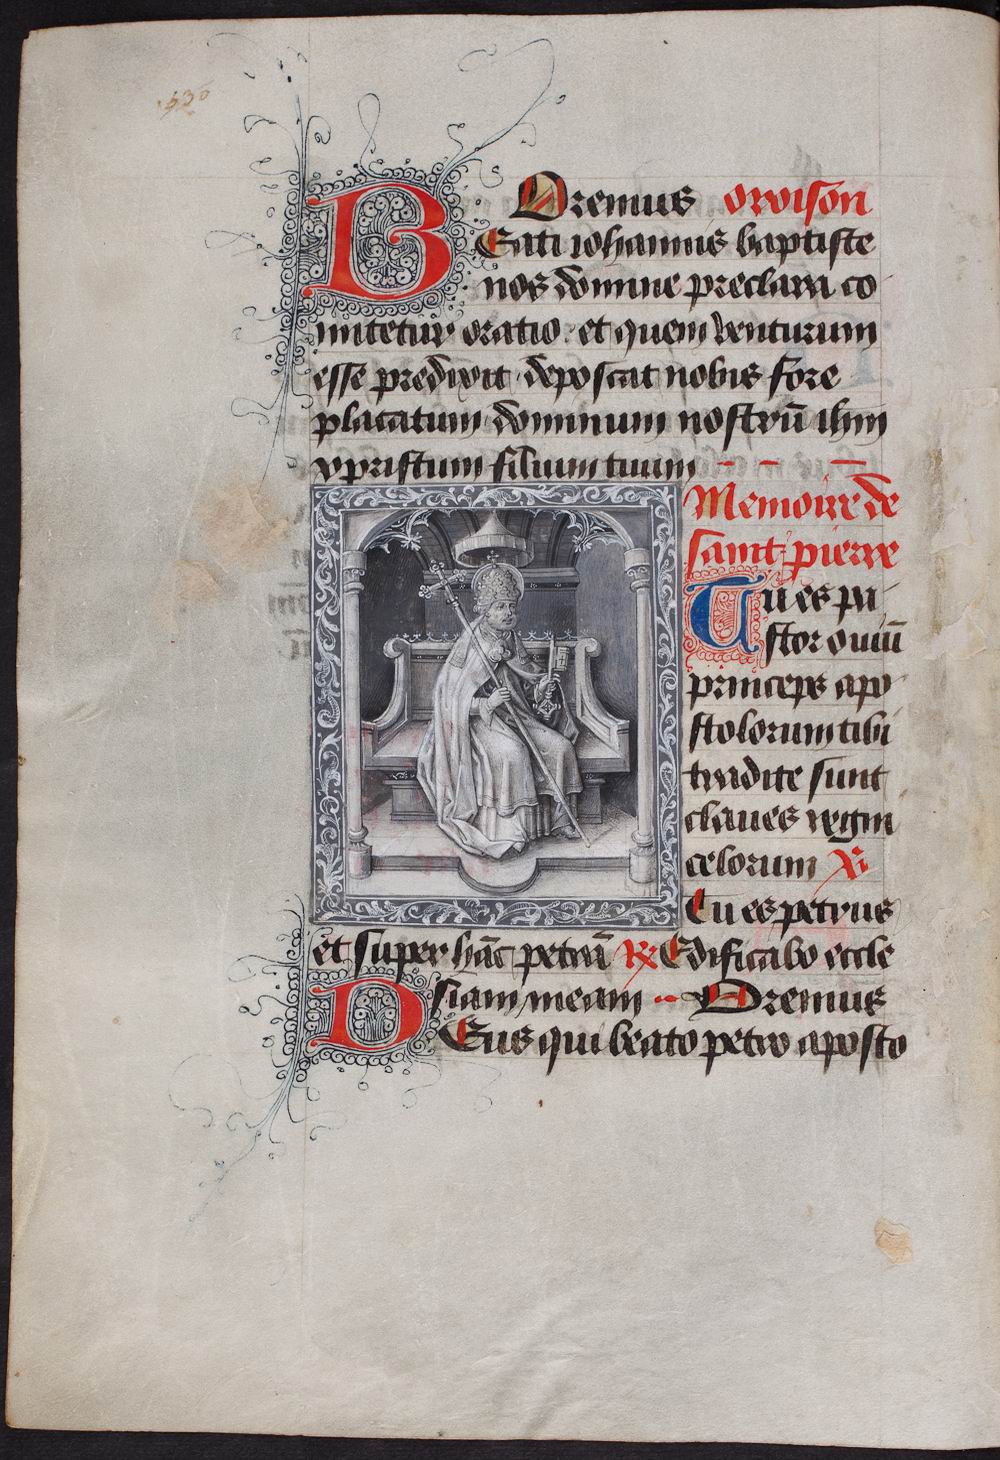 Oremus oroison
Beati iohannis baptiste
nos domine preclara co
mitetur oratio · et quem venturum
esse predixit · deposcat nobis fore
placatum dominum nostrū ihm
xpristum filium tuum
Memoire de
saint pierre
Tu es pa
stor ouiū
princeps apo
stolorum tibi
tradite sunt
claues regni
celorum ℣
Tu es petrus
et super hāc petrā ℟ Edificabo eccle
siam meam Oremus
Deus qui beato petro aposto